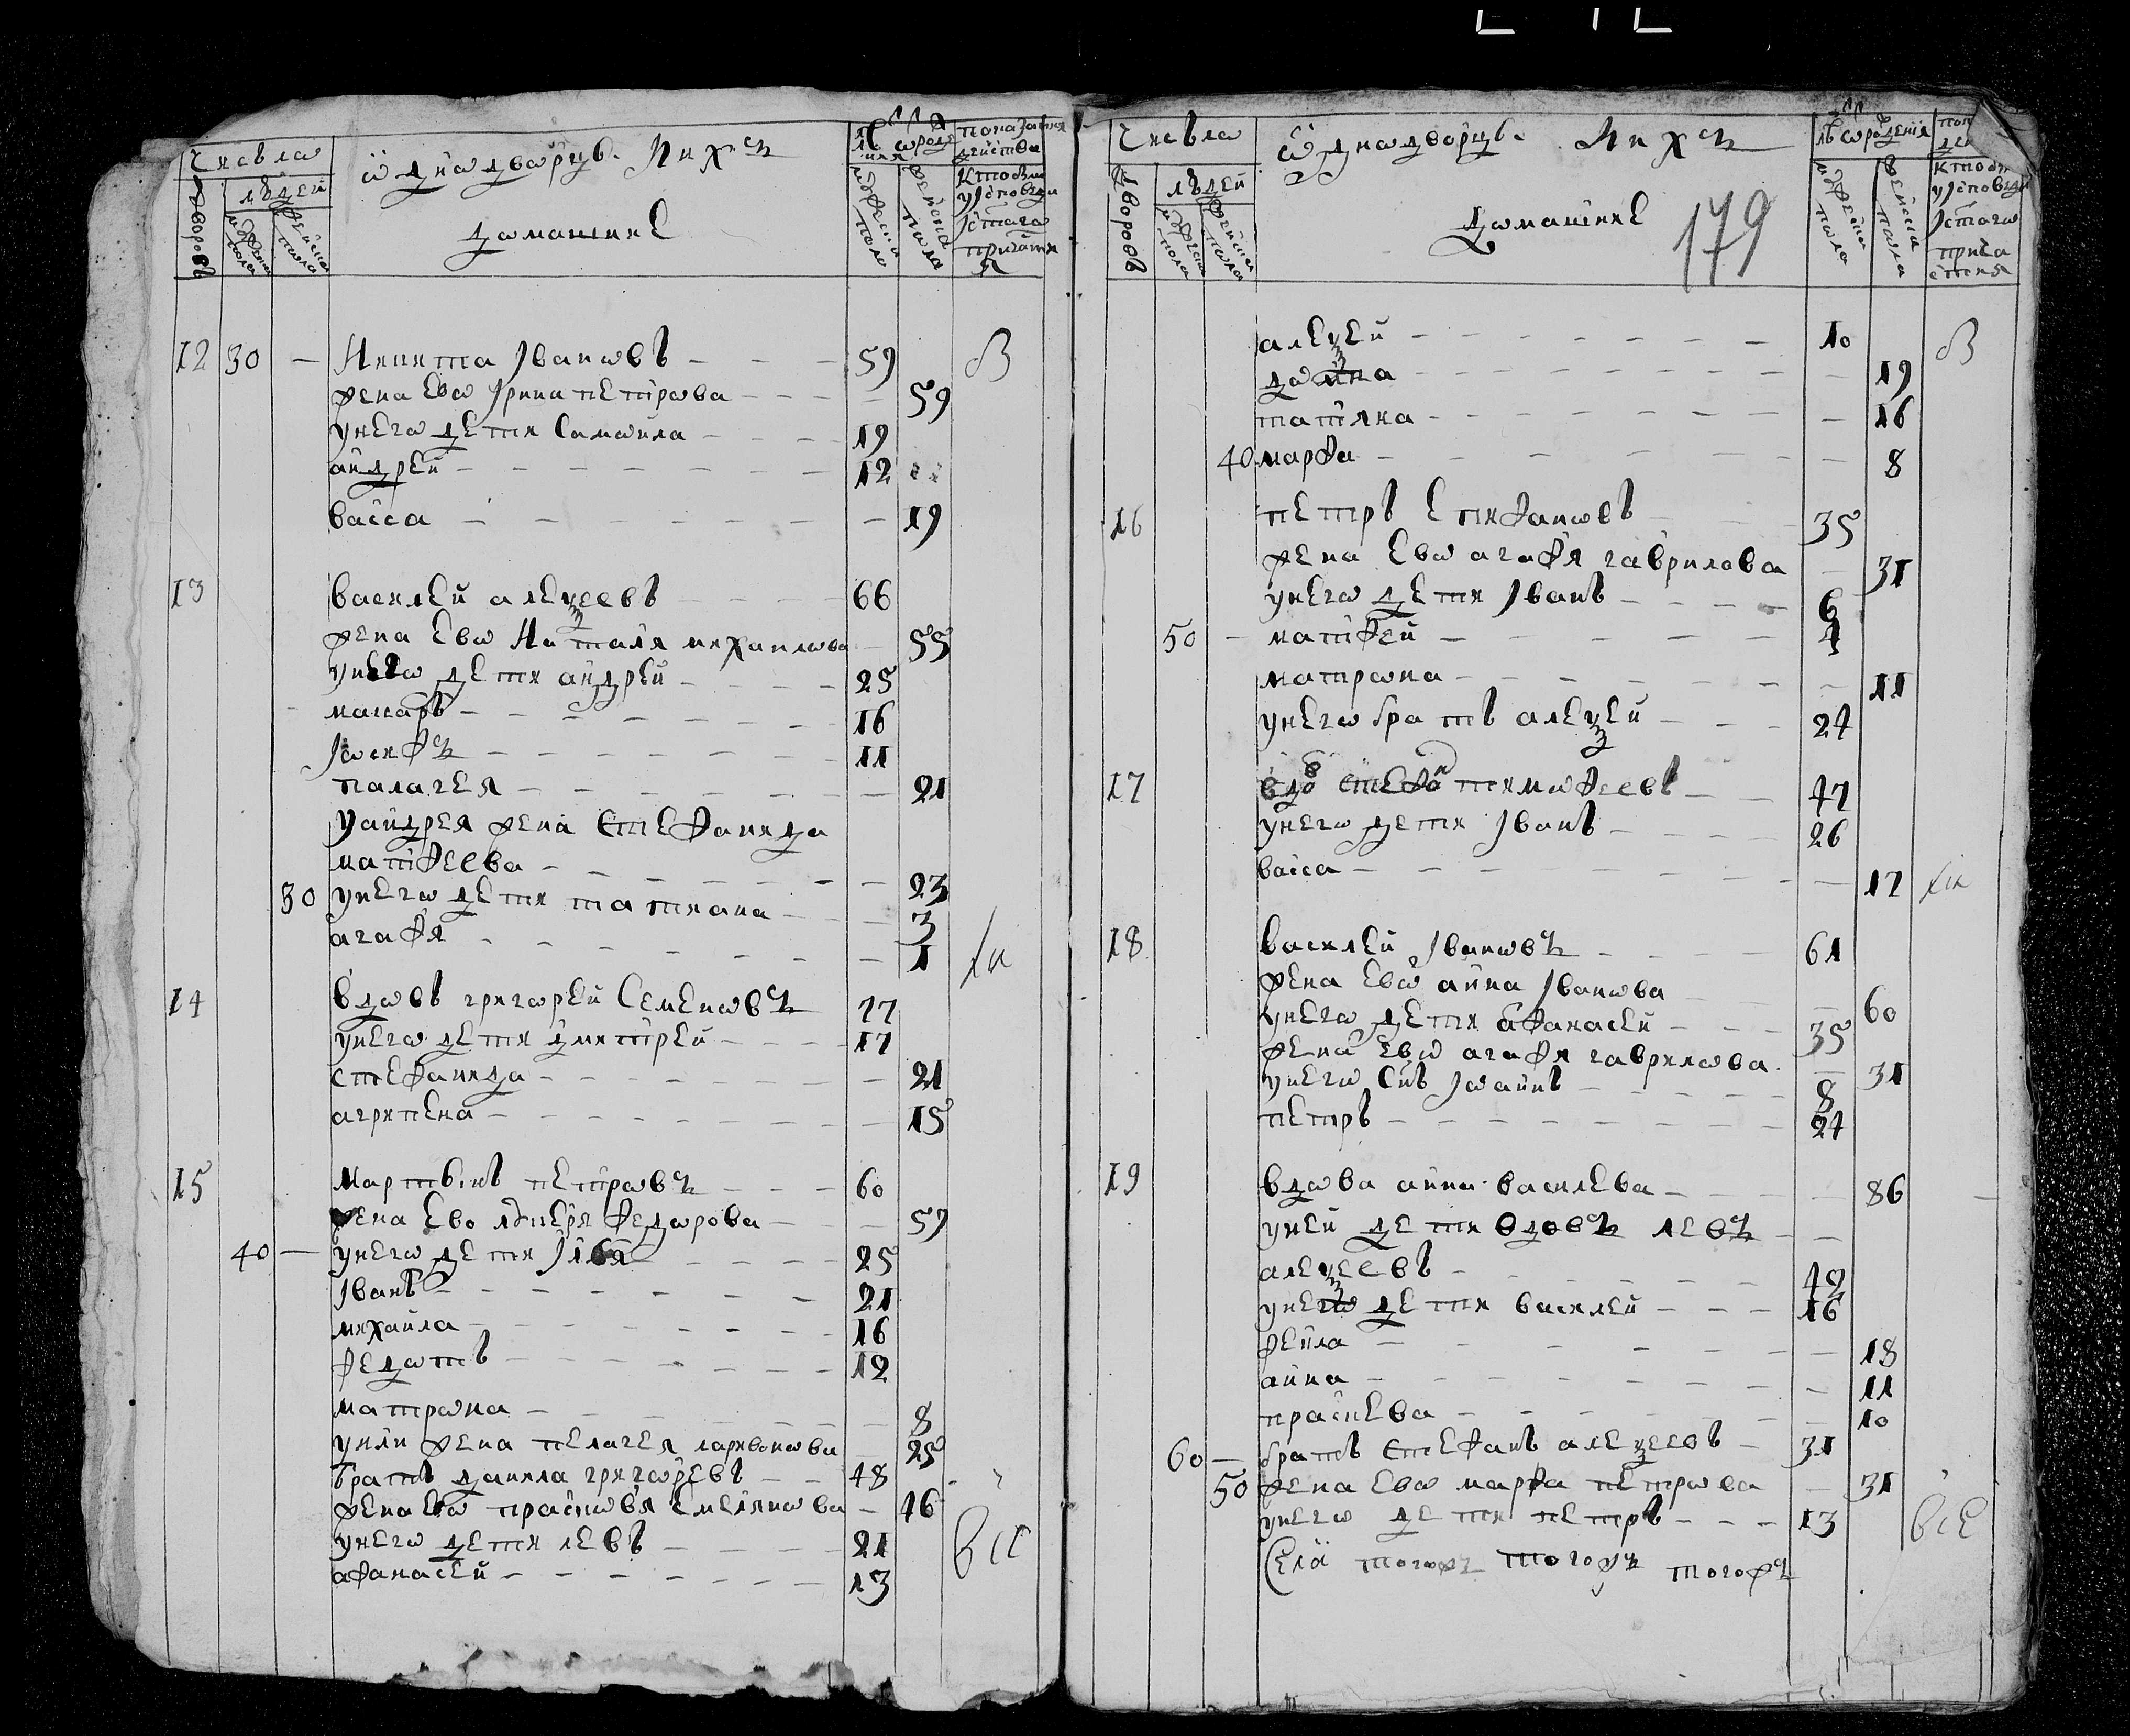 Числа
людей
дворовъ
мужеска пола
женска пола
однодворцы. Ихъ
домашние
лета от рождения
мужеска пола
женска пола
показания действа
кто был у исповеди
и святаго
причастия
12 30 — Никита Ивановъ 59 в
жена ево Ирина петрова 59
у него дети Самойла 19
андрей 12
васса 19
13 василей алеѯеевъ 66
жена ево Наталя михаилова 55
у него дети андрей 25
макаръ 16
Иосифъ 11
палагея 21
у андрея жена Стефанида
матфеева 23
30 у него дети татиана 3
агафя 1
14 вдовъ григорей Семеновъ 77
у него дети димитрей 17
стефанида 21
агрипена 15
15 Мартынъ петровъ 60
жена ево федорова 57
40 — у него дети 25
Иванъ 21
михайла 16
федотъ 12
матрона 8
жена пелагея ларивонова 25
братъ данила григоревъ 48
жена ево прасковя емелянова 46
у него дети левъ 21 все
афанасей 13
Числа
людей
дворовъ
мужеска пола
женска пола
однодворцы. Ихъ
домашние
179
от рождения
мужеска пола
женска пола
у исповеди
и святаго
причастия
алеѯей 10 в
домна 19
татяна 16
40 марфа 8
16 петръ епифановъ 35
жена ево агафя гаврилова 31
у него дети Иванъ 6
50 — матфей 4
матрона 11
у него братъ алеѯей 24
17 вдов стефан тимофеевъ 47
у него дети Иванъ 26
васса 17
18 василей Ивановъ 61
жена ево анна Иванова 60
у него дети афанасей 35
жена ево агафя гаврилова 31
у него снъ Иоаннъ 8
петръ 24
19 вдова анна василева 86
у ней дети вдовъ левъ
алеѯеевъ 42
у него дети василей 16
фекла 18
анна 11
праскева 10
60 — братъ Стефанъ алеѯеевъ 31
50 жена ево марфа петрова 31
у него дети петръ 13 все
Села тогожъ тогожъ тогожъ